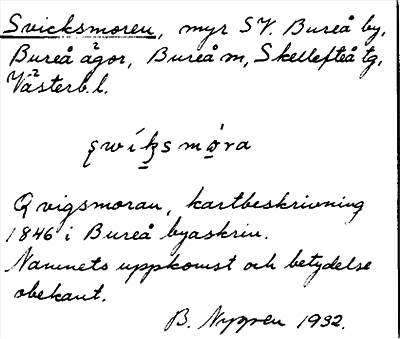 Svicksmoren, myr SV. Bureå by,
Bureå ägor, Bureå m, Skellefteå tg,
Västerb. l.
Qvigsmoran, kartbeskrivning
1846 i Bureå byaskriv.
Namnets uppkomst och betydelse
obekant.
B. Nygren 1932.